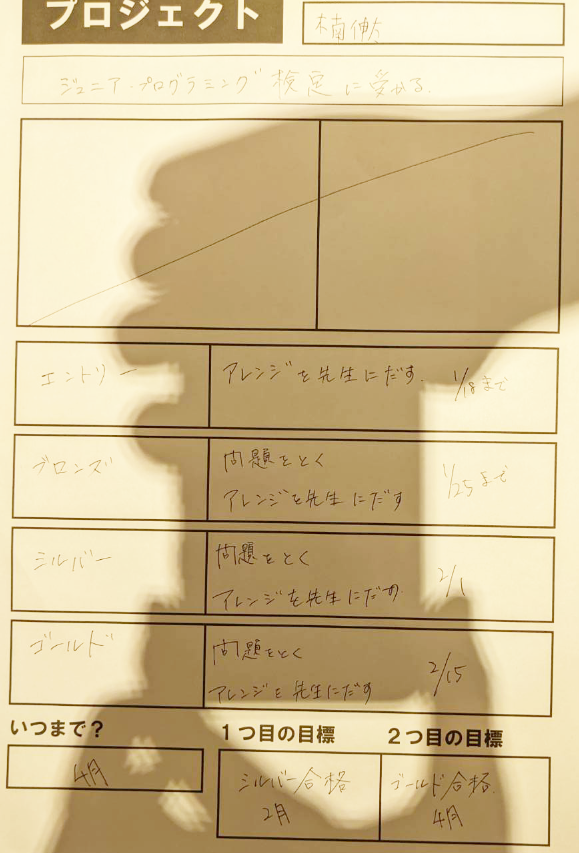 プロジェクト
楠伸太
ジュニア・プログラミング検定に受かる。
エントリー
アレンジを先生にだす。
1/18まで
ブロンズ
問題をとく
アレンジを先生にだす
1/25まで
シルバー
問題をとく
アレンジを先生にだす
2/1
ゴールド
問題をとく
アレンジを先生にだす
2/15
いつまで?
4月
1つ目の目標
シルバー合格
2月
2つ目の目標
ゴールド合格。
4月